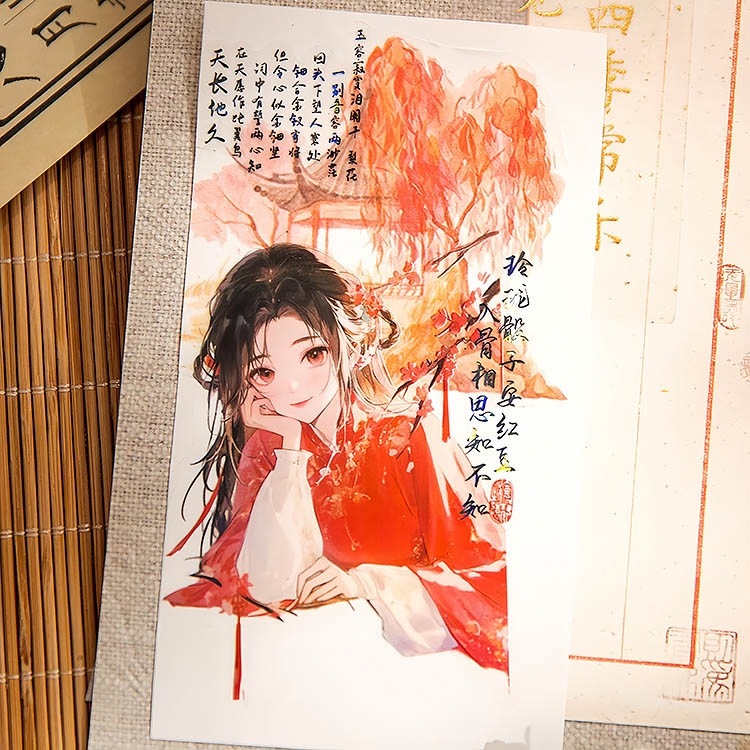 玉容寂寞泪阑干 梨花
一别音容两渺茫
回头下望人寰处
钿合金钗寄将
但令心似金钿坚
词中有誓两心知
在天愿作比翼鸟
天长地久
玲珑骰子安红豆
入骨相思知不知
四季常乐